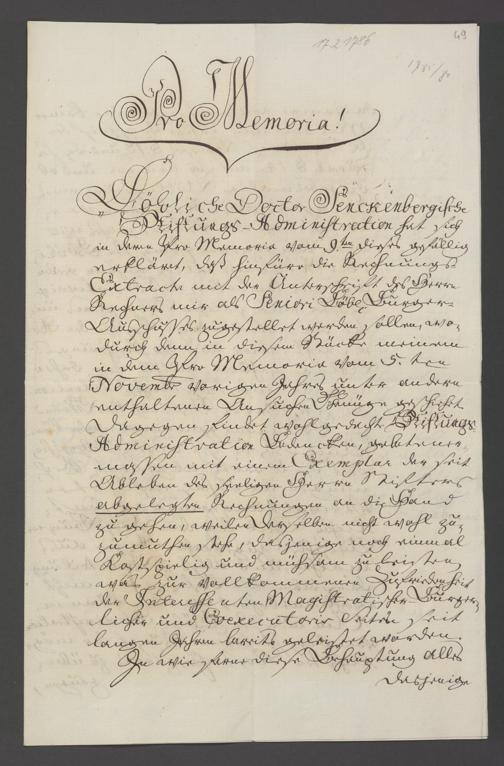 17.2.1786
49
1785/86
Pro Memoria!
Löbliche Doctor Senckenbergische
Stiftungs-Administration hat sich
in dern Pro Memoria vom 9ten dieses gefällig
erklärt, daß hinführo die Rechnungs
Extracte mit der Unterschrift des Herrn
Rechners mir als Seniori Löbl. Bürger-
Ausschusses zugestellet werden sollen, wo-
durch denn in diesem Stücke meinem
in dem Pro Memoria vom 5. ten
Novembr vorigen Jahres unter andern
enthaltenen Ansuchen Genüge geschiehet.
Dagegen findet wohlgedachte Stiftungs
Administration Bedencken, gebetener-
massen mit einem Exemplar der seit
Ableben des seeligen Herrn Stifters
abgelegten Rechnungen an die Hand
zu gehen, weilen derselben nicht wohl zu-
zumuthen stehe, dasjenige noch einmal
Kostspielig und mühsam zu leisten,
was zur vollkommenen Zufriedenheit
der Interessenten Magistratischer Bürger-
licher und Coexecutoris Seiten seit
langen Jahren bereits geleistet worden.
In wie ferne diese Behauptung alles
dasjenige